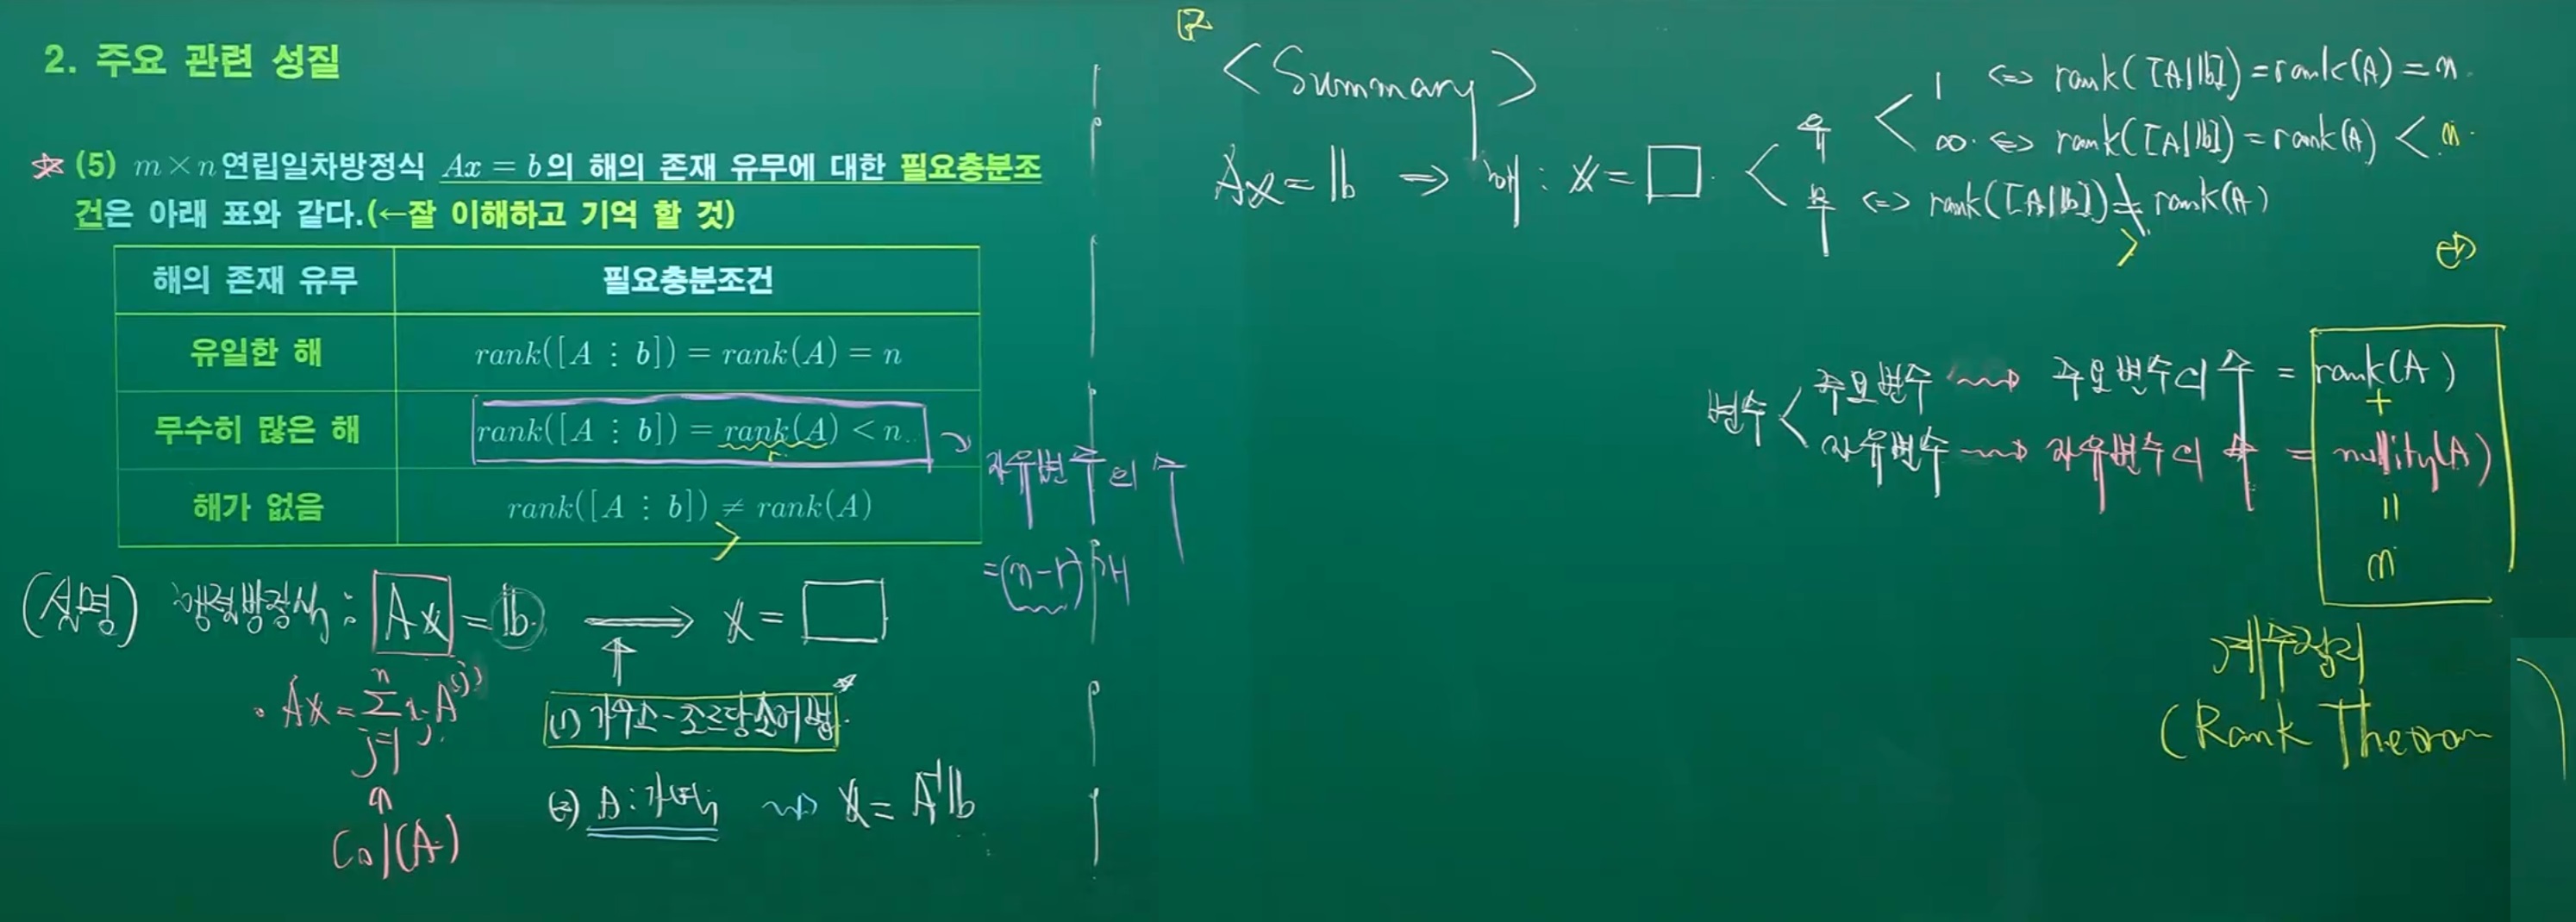 2. 주요 관련 성질
☆ (5) m×n연립일차방정식 Ax = b의 해의 존재 유무에 대한 필요충분조
건은 아래 표와 같다.(←잘 이해하고 기억 할 것)
해의 존재 유무 필요충분조건
유일한 해 rank([A ⋮ b]) = rank(A) = n
무수히 많은 해 rank([A ⋮ b]) = rank(A) < n
r
해가 없음 rank([A ⋮ b]) ≠ rank(A)
>
자유변수의 수
=(n-r)개
(설명) 행렬방정식 : Ax = b → x = □
· Ax = Σ_{j=1}^{n} x_j A^{(j)}
∩
Col(A)
↑
(1) 가우스-조르당 소거법 ☆
(2) A : 가역 ⇝ x = A⁻¹b
<Summary>
Ax = b ⇒ 해 : x = □
유 < 1 ⇔ rank([A|b]) = rank(A) = n
∞ ⇔ rank([A|b]) = rank(A) < n
무 ⇔ rank([A|b]) ≠ rank(A)
>
변수 < 주요변수 ⇝ 주요변수의 수 = rank(A)
+
자유변수 ⇝ 자유변수의 수 = nullity(A)
=
n
계수정리
(Rank Theorem)